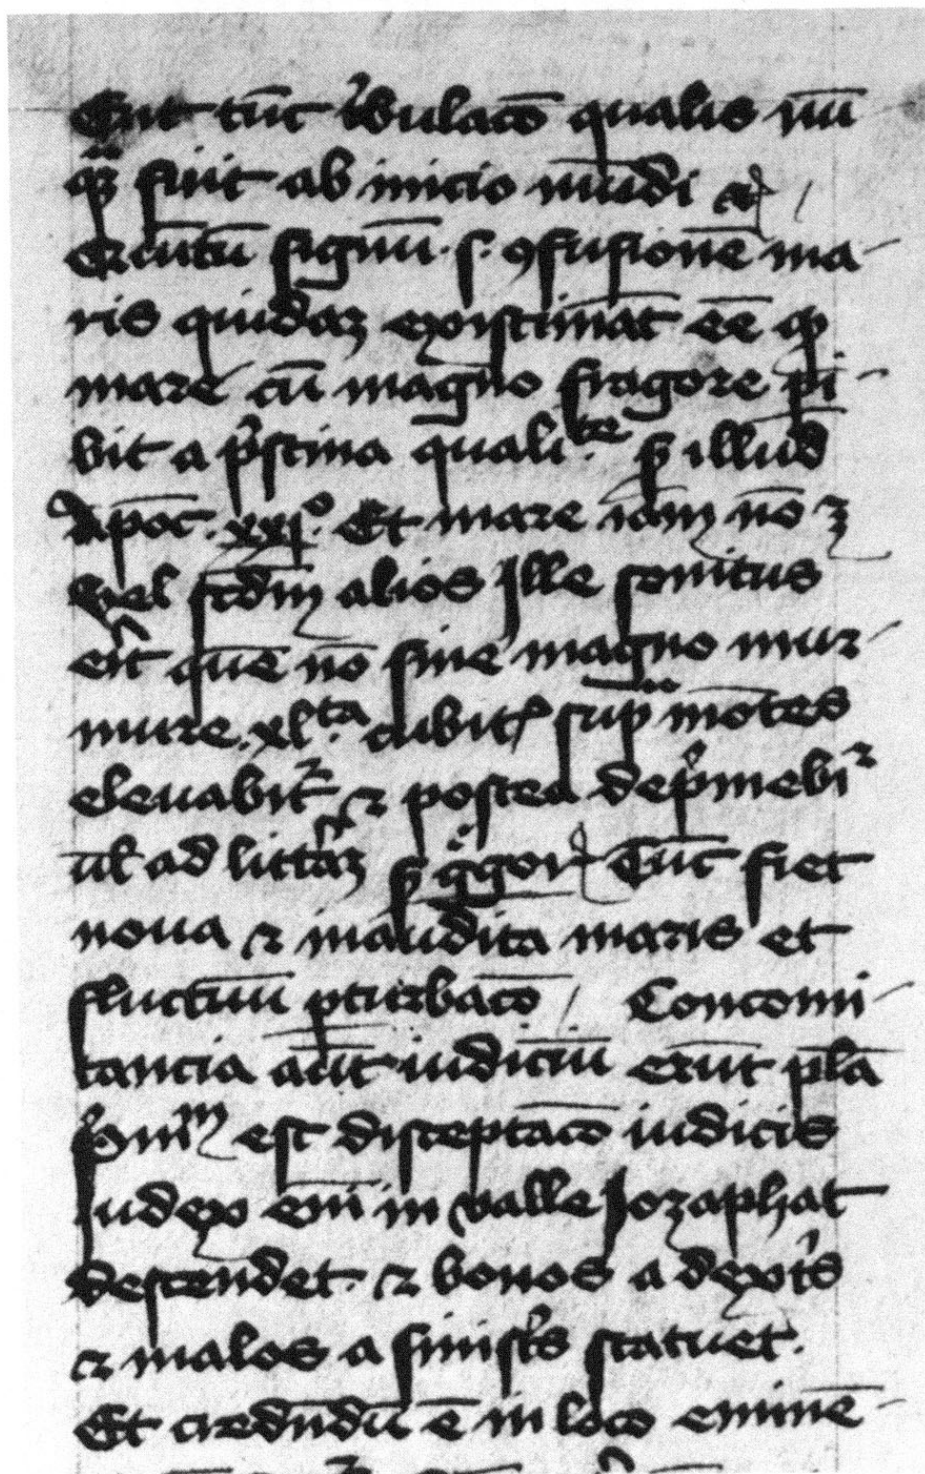 Erit tūc t'bulacō qualis nū
qᷓ fuit ab inicio mūdi
Quītū signū .s. ꝯfusionē ma-
ris quidaꝫ existimāt eē qꝫ
mare cū magno fragore pi-
bit a p'stina quali.tᵉ ſꝫ illud
Apoc. xxj.º Et mare iam nō ꝫ
Uel scdm alios Ille sonitus
e'it quē nō sine magno mur-
mure .xl.ᵗᵃ cubitꝭ suꝑ mōtes
eleuabit' ⁊ postea dep'mebi'
ul' ad litt'aꝫ gᵉgor Tūc fiet
noua ⁊ inaudita maris et
fluctuū ꝑturbacō / Concomi-
tancia aūt iudiciū erūt pl'a
p'mūm est disceptacō iudicis
Iudex em̄ in valle Jozaphat
descendet. ⁊ bonos a dext'is
⁊ malos a sinist's statuet.
Et credndū ē in loco eminē-